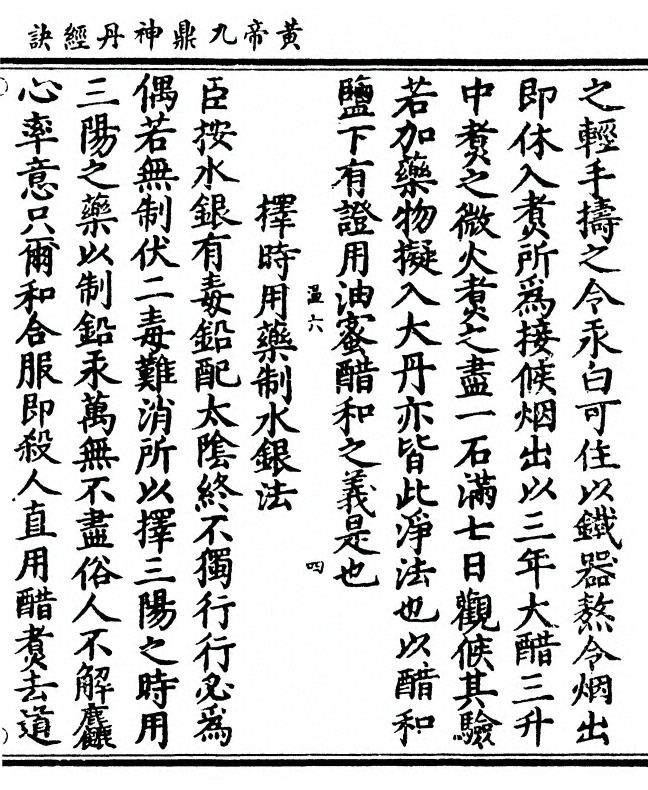 黃帝九鼎神丹經訣
之輕手擣之令汞白可住以鐵器熬令烟出
即休入煑所為接候烟出以三年大醋三升
中煑之微火煑之盡一石滿七日觀候其驗
若加藥物擬入大丹亦皆此淨法也以醋和
鹽下有證用油蜜醋和之義是也
溫六
四
擇時用藥制水銀法
臣按水銀有毒鉛配太陰終不獨行行必為
偶若無制伏二毒難消所以擇三陽之時用
三陽之藥以制鉛汞萬無不盡俗人不解麤
心率意只爾和合服即殺人直用醋煑去道